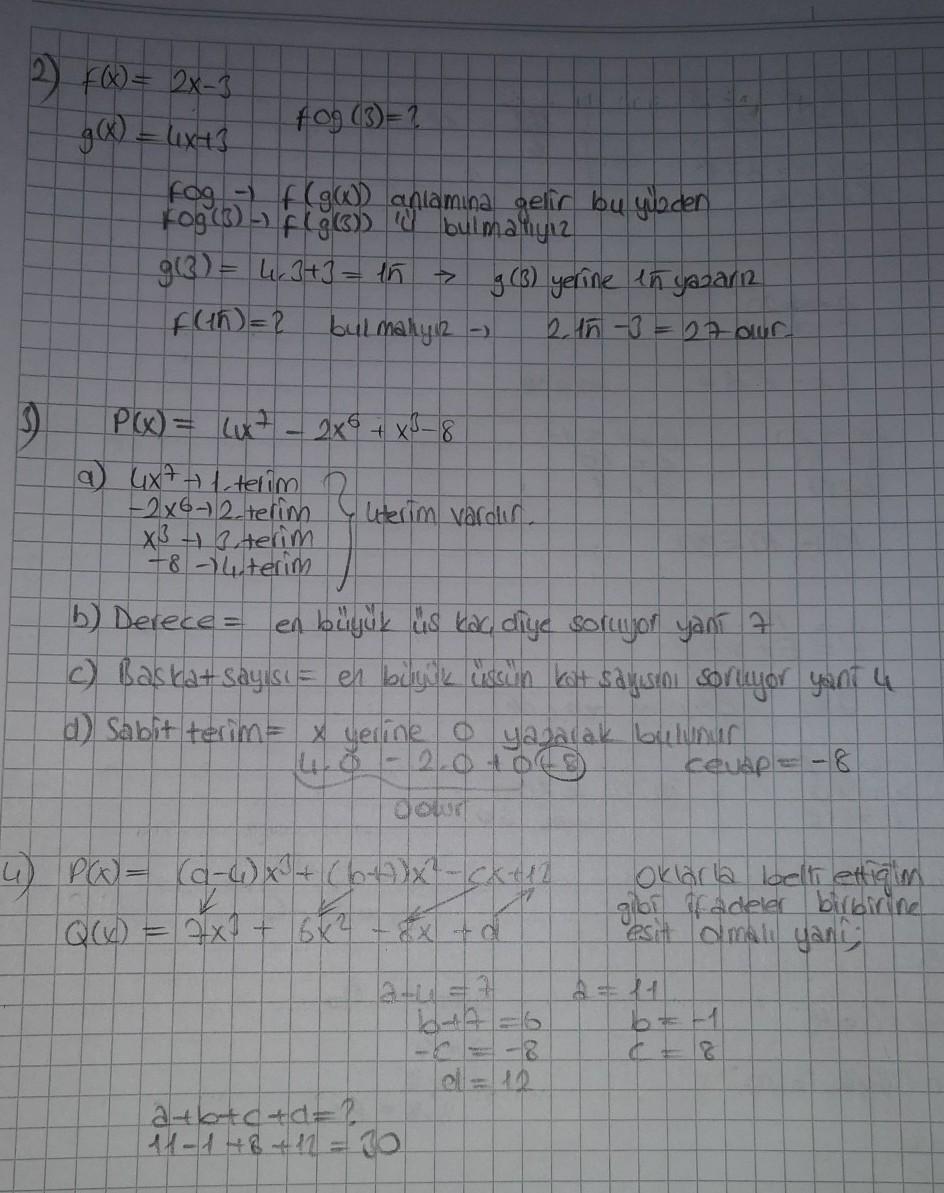 2) f(x) = 2x-3
fog(3)=?
g(x) = 4x+3
fog → f(g(x)) anlamına gelir bu yüzden
fog(3) → f(g(3)) ü bulmalıyız
g(3) = 4.3+3 = 15 → g(3) yerine 15 yazarız
f(15)=? bulmalıyız → 2.15 -3 = 27 olur.
3) P(x) = 4x⁷ - 2x⁶ + x³-8
a) 4x⁷ → 1.terim
-2x⁶ → 2.terim
4terim vardır.
x³ → 3.terim
-8 → 4.terim
b) Derece = en büyük üs kaç diye soruyor yani 7
c) Baskatsayısı = en büyük üssün kat sayısını soruyor yani 4
d) Sabit terim = x yerine 0 yazarak bulunur
4.0 - 2.0 + 0 -8 cevap = -8
0 olur
4) P(x) = (a-4)x³ + (b+7)x² - cx+12 Oklarla belli ettiğim
gibi ifadeler birbirine
Q(x) = 7x³ + 6x² - 8x + d eşit olmalı yani;
a-4 = 7 a = 11
b+7 = 6 b = -1
-c = -8 c = 8
d = 12
a+b+c+d = ?
11-1+8+12 = 30